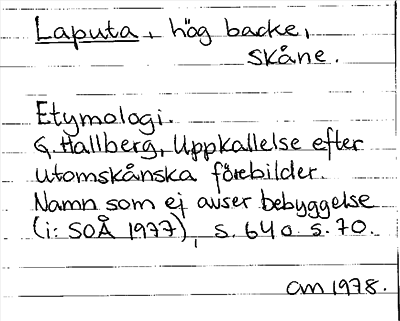 Laputa, hög backe,
Skåne.
Etymologi.
G. Hallberg, Uppkallelse efter
utomskånska förebilder.
Namn som ej avser bebyggelse
(i: SOÅ 1977), s. 64 o. s. 70.
am 1978.